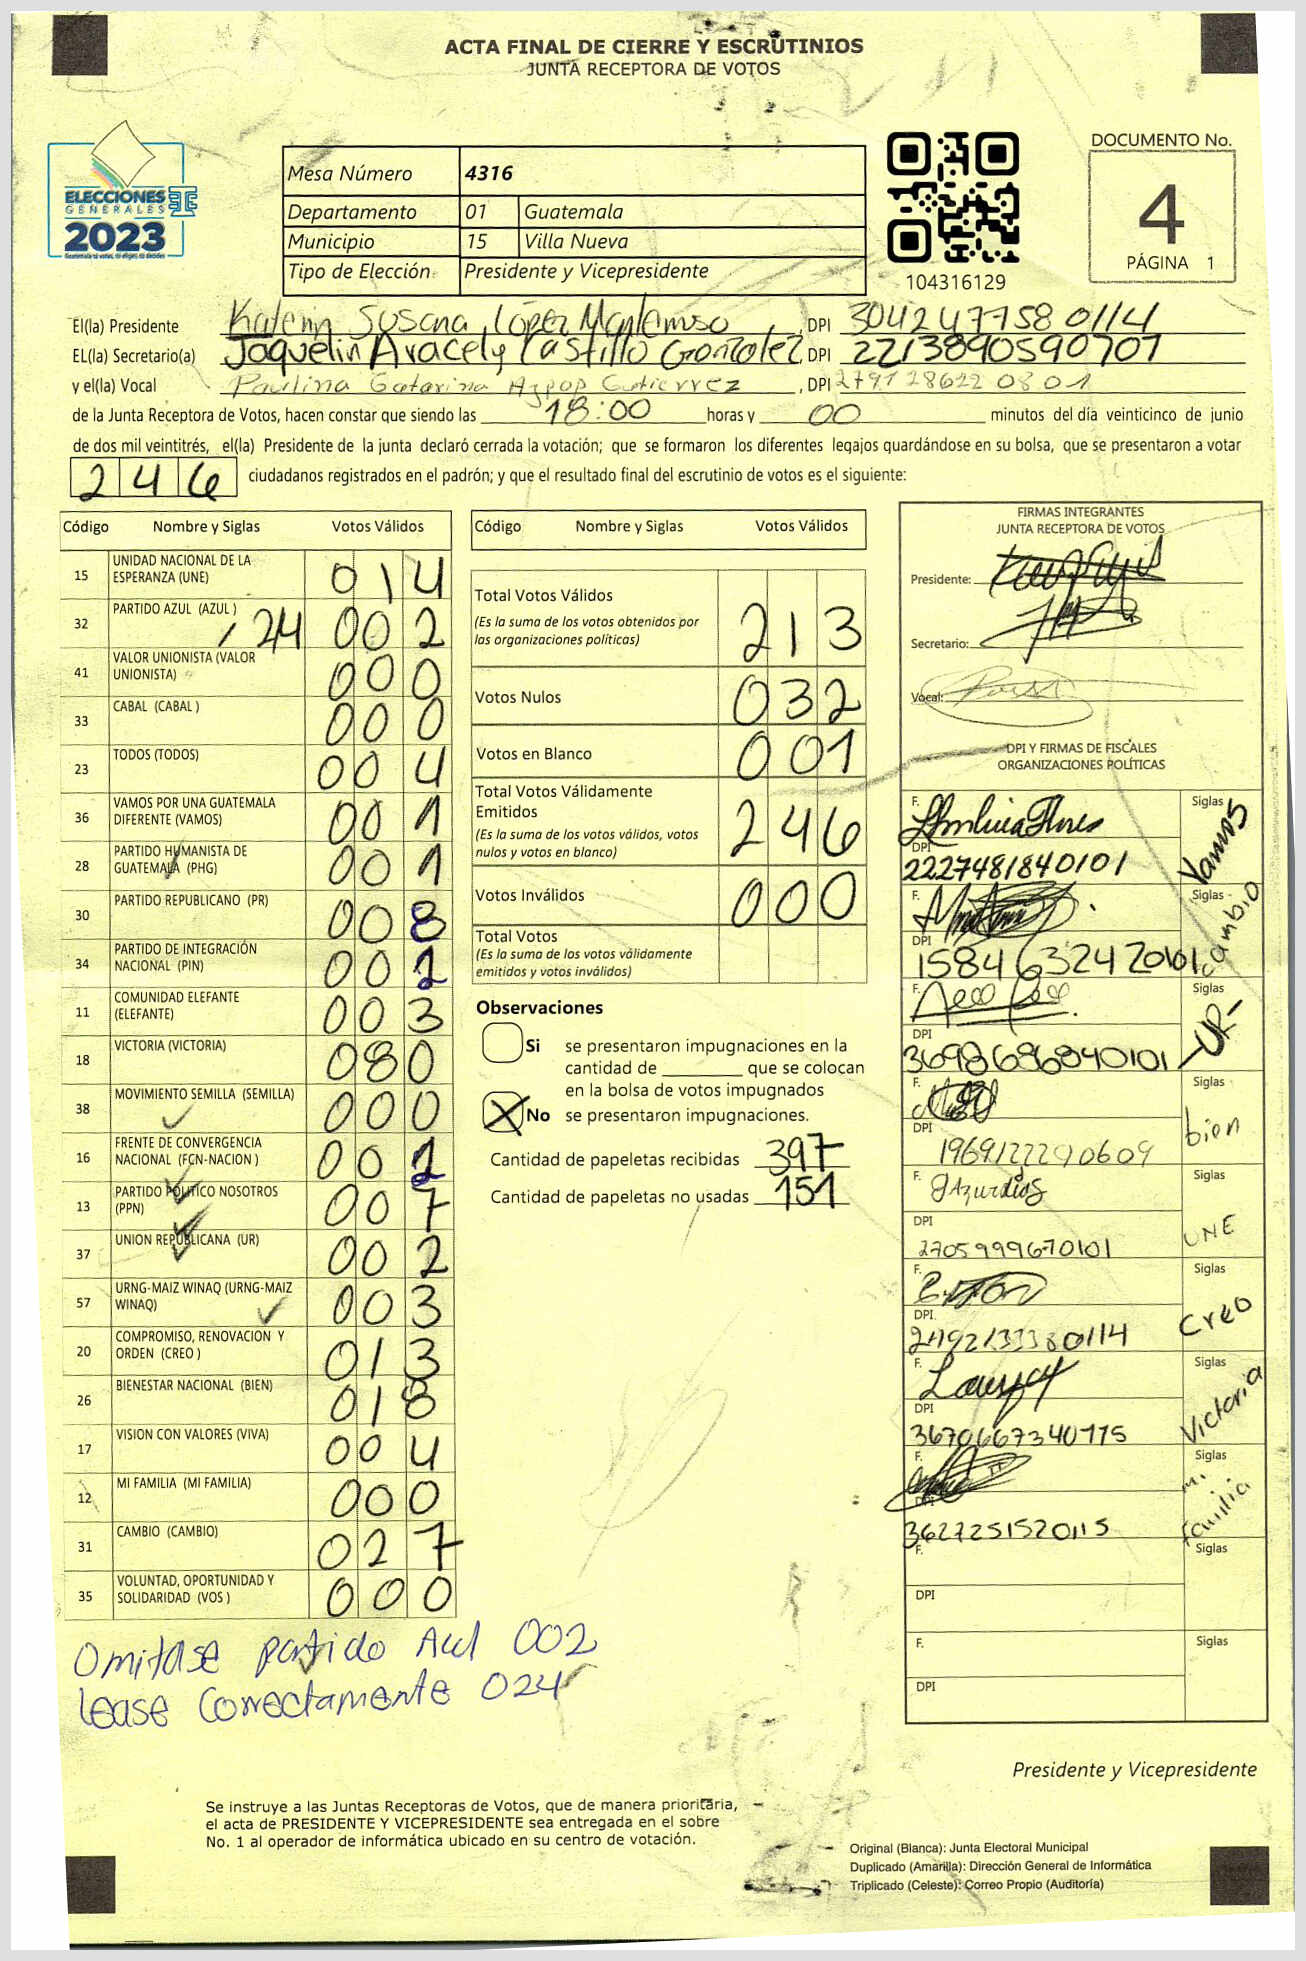 ACTA FINAL DE CIERRE Y ESCRUTINIOS
JUNTA RECEPTORA DE VOTOS
ELECCIONES
GENERALES
2023
Mesa Número 4316
Departamento 01 Guatemala
Municipio 15 Villa Nueva
Tipo de Elección Presidente y Vicepresidente
104316129
DOCUMENTO No.
4
PÁGINA 1
El(la) Presidente Katerin Susana López , DPI 3042477580114
EL(la) Secretario(a) Jaquelin Aracely Castillo Gonzalez, DPI 2213890590707
y el(la) Vocal Paulina Catarina Gutierrez , DPI 2791286220801
de la Junta Receptora de Votos, hacen constar que siendo las 18:00 horas y 00 minutos del día veinticinco de junio
de dos mil veintitrés, el(la) Presidente de la junta declaró cerrada la votación; que se formaron los diferentes legajos guardándose en su bolsa, que se presentaron a votar
246 ciudadanos registrados en el padrón; y que el resultado final del escrutinio de votos es el siguiente:
Código Nombre y Siglas Votos Válidos
15 UNIDAD NACIONAL DE LA ESPERANZA (UNE) 014
32 PARTIDO AZUL (AZUL ) 24 002
41 VALOR UNIONISTA (VALOR UNIONISTA) 000
33 CABAL (CABAL ) 000
23 TODOS (TODOS) 004
36 VAMOS POR UNA GUATEMALA DIFERENTE (VAMOS) 001
28 PARTIDO HUMANISTA DE GUATEMALA (PHG) 001
30 PARTIDO REPUBLICANO (PR) 008
34 PARTIDO DE INTEGRACIÓN NACIONAL (PIN) 002
11 COMUNIDAD ELEFANTE (ELEFANTE) 003
18 VICTORIA (VICTORIA) 080
38 MOVIMIENTO SEMILLA (SEMILLA) 000
16 FRENTE DE CONVERGENCIA NACIONAL (FCN-NACION ) 002
13 PARTIDO POLITICO NOSOTROS (PPN) 007
37 UNION REPUBLICANA (UR) 002
57 URNG-MAIZ WINAQ (URNG-MAIZ WINAQ) 003
20 COMPROMISO, RENOVACION Y ORDEN (CREO ) 013
26 BIENESTAR NACIONAL (BIEN) 018
17 VISION CON VALORES (VIVA) 004
12 MI FAMILIA (MI FAMILIA) 000
31 CAMBIO (CAMBIO) 027
35 VOLUNTAD, OPORTUNIDAD Y SOLIDARIDAD (VOS ) 000
Omitase partido Azul 002
Lease Correctamente 024
Código Nombre y Siglas Votos Válidos
Total Votos Válidos 213
(Es la suma de los votos obtenidos por
las organizaciones políticas)
Votos Nulos 032
Votos en Blanco 001
Total Votos Válidamente
Emitidos 246
(Es la suma de los votos válidos, votos
nulos y votos en blanco)
Votos Inválidos 000
Total Votos
(Es la suma de los votos válidamente
emitidos y votos inválidos)
Observaciones
Si se presentaron impugnaciones en la
cantidad de ________ que se colocan
en la bolsa de votos impugnados
X No se presentaron impugnaciones.
Cantidad de papeletas recibidas 397
Cantidad de papeletas no usadas 151
FIRMAS INTEGRANTES
JUNTA RECEPTORA DE VOTOS
Presidente:
Secretario:
Vocal:
DPI Y FIRMAS DE FISCALES
ORGANIZACIONES POLÍTICAS
F. Siglas Vamos
DPI 2227481840101
F. Siglas Cambio
DPI 1584632420101
F. Siglas UR
DPI 3698686840101
F. Siglas bien
DPI 1969122290609
F. Siglas UNE
DPI 2705999670101
F. Siglas Creo
DPI
F. Siglas Victoria
DPI 3670667340115
F. Siglas mi familia
DPI 3627251520115
F. Siglas
DPI
F. Siglas
DPI
Presidente y Vicepresidente
Se instruye a las Juntas Receptoras de Votos, que de manera prioritaria,
el acta de PRESIDENTE Y VICEPRESIDENTE sea entregada en el sobre
No. 1 al operador de informática ubicado en su centro de votación.
Original (Blanca): Junta Electoral Municipal
Duplicado (Amarilla): Dirección General de Informática
Triplicado (Celeste): Correo Propio (Auditoría)